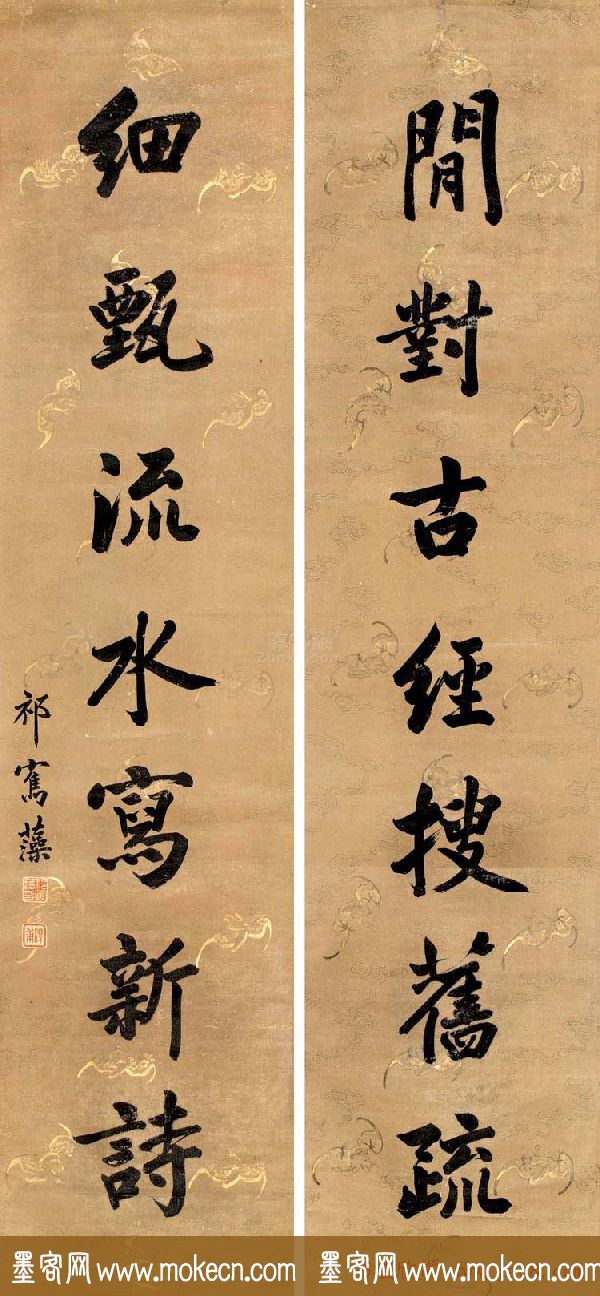 閒對古經搜舊疏
細甄流水寫新詩
祁寯藻
墨客网 www.mokecn.com
墨客网 www.mokecn.com